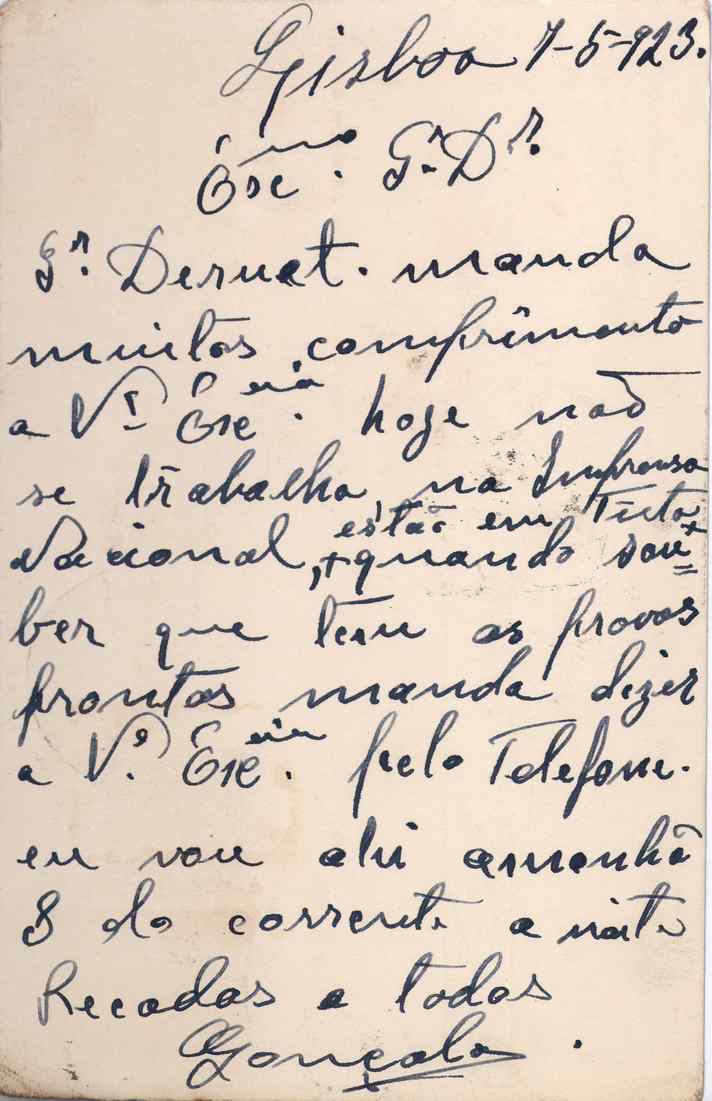 Lisboa 7-5-923.
Exmo. Sr. Dr.
Sr. Dernat. manda
muitos comprimento
a V. Excia. hoje não
se trabalha, na Imprensa
estão em Tinta
Nacional, + quando sou=
ber que tem as provas
prontas manda dizer
a V. Excia. pelo Telefone.
eu vou ahi amenhã
8 do corrente a noite
Recados a todos
Gonçalo.